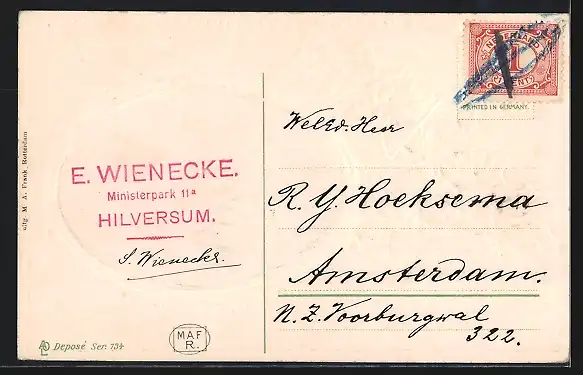 NEDERLAND
1
CENT
PRINTED IN GERMANY.
WelEd. Heer
R. Y. Hoeksema
Amsterdam.
N. Z. Voorburgwal
322.
E. WIENECKE.
Ministerpark 11a
HILVERSUM.
S. Wienecke.
uitg. M. A. Frank, Rotterdam
Deposé Ser. 734
MAF
R.